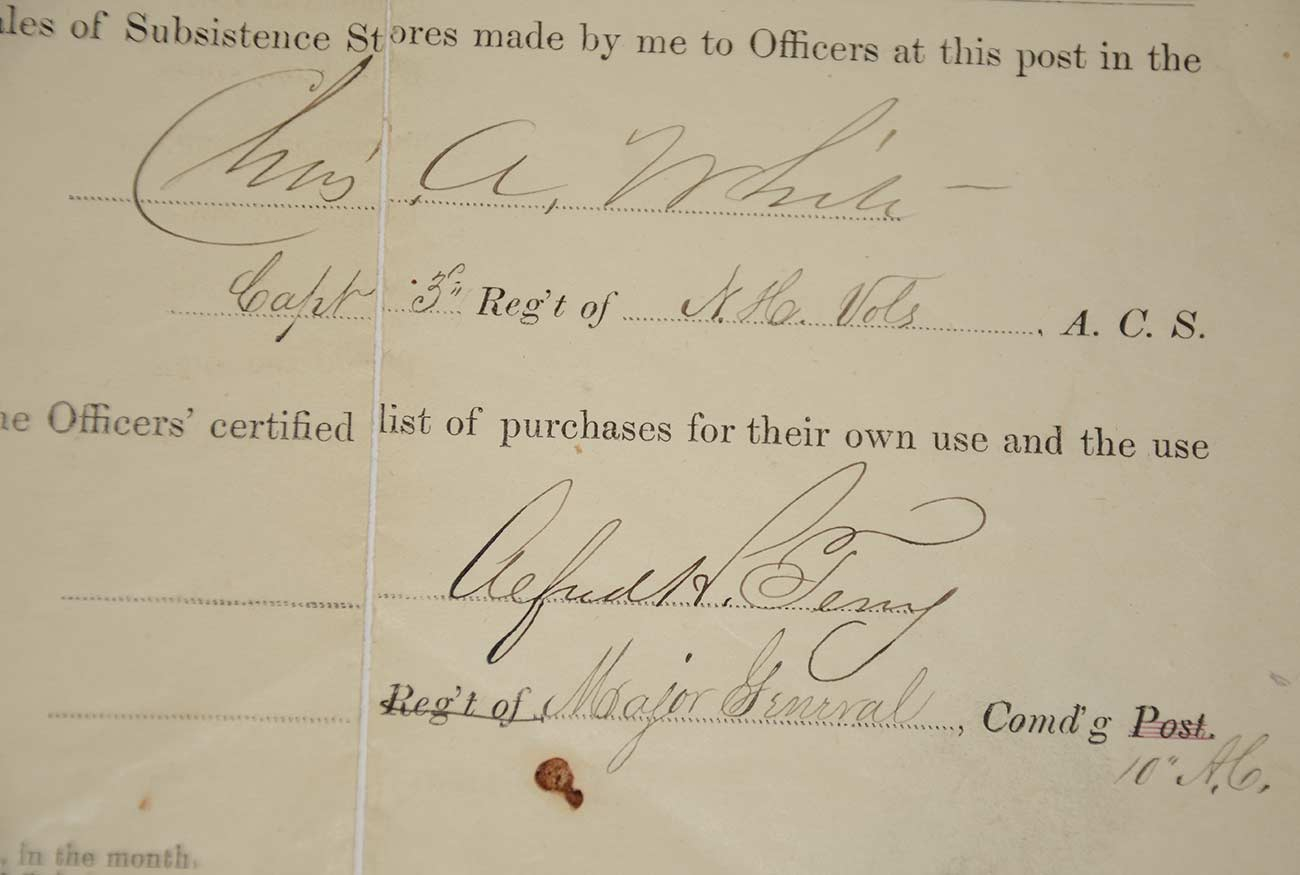 ales of Subsistence Stores made by me to Officers at this post in the
Chas. A. White
Capt 3d Reg't of N. H. Vols , A. C. S.
he Officers' certified list of purchases for their own use and the use
Alfred H. Terry
Reg't of Major General , Comd'g Post.
10" A.C.
, in the month.